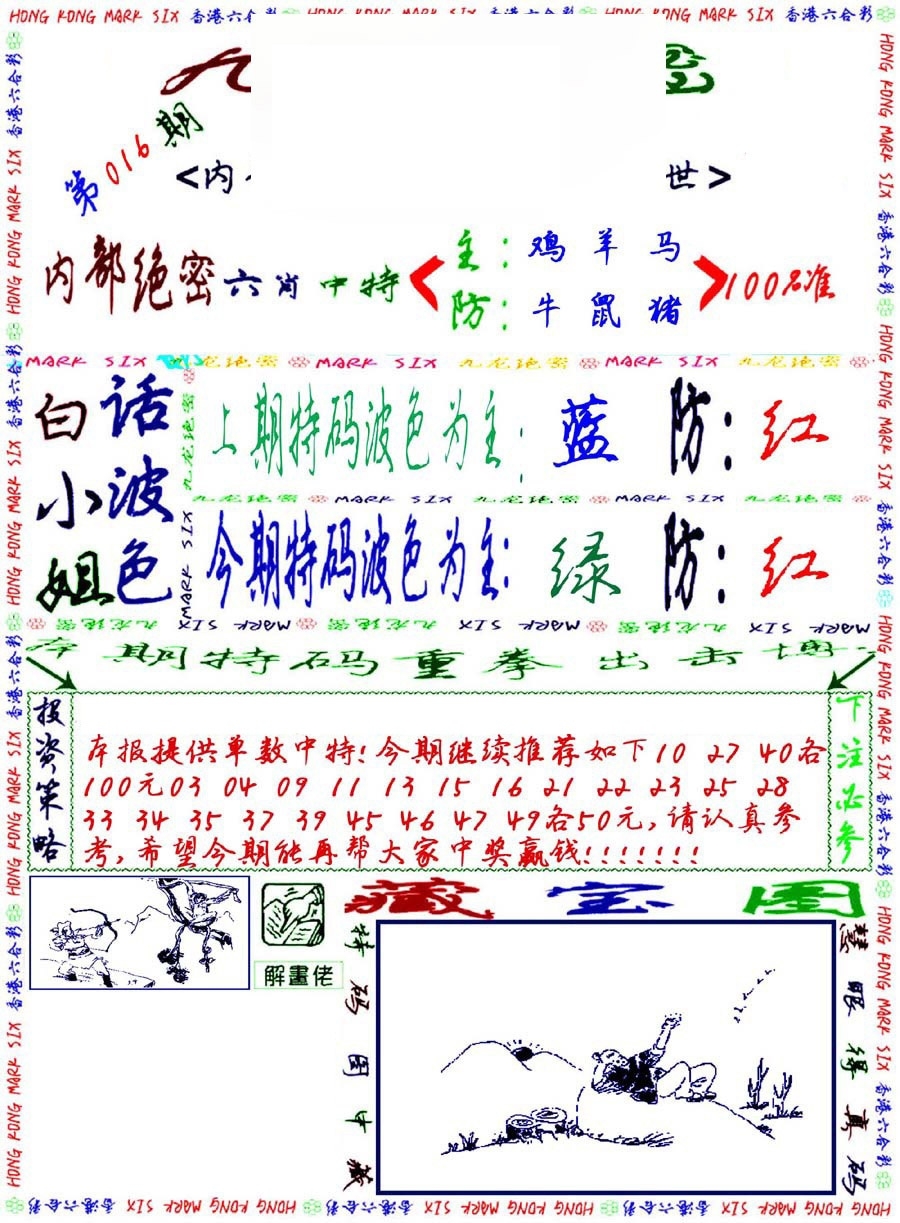 HONG KONG MARK SIX 香港六合彩 HONG KONG MARK SIX 香港六合彩 HONG KONG MARK SIX 香港六合彩
第016期
<内
世>
内部绝密六肖中特
主：鸡 羊 马
防：牛 鼠 猪
100%准
MARK SIX 九龙绝密 MARK SIX 九龙绝密 MARK SIX 九龙绝密
白话
小波
姐色
上期特码波色为主：蓝 防：红
九龙绝密 MARK SIX 九龙绝密 MARK SIX 九龙绝密
今期特码波色为主：绿 防：红
九龙绝密 MARK SIX 九龙绝密 MARK SIX 九龙绝密 MARK SIX
期特码重拳出击博
投资策略
本报提供单数中特!今期继续推荐如下10 27 40各
100元03 04 09 11 13 15 16 21 22 23 25 28
33 34 35 37 39 45 46 47 49各50元,请认真参
考,希望今期能再帮大家中奖赢钱!!!!!!!
下注必参
解畫佬
藏宝图
特码图中藏
慧眼得真码
HONG KONG MARK SIX 香港六合彩 HONG KONG MARK SIX 香港六合彩 HONG KONG MARK SIX